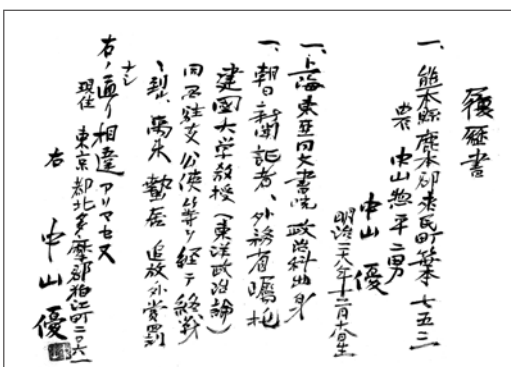 履歴書
一、熊本縣鹿本郡来民町 七五三
農 中山惣平二男
中山優
明治二八年十二月 日生
一、上海東亜同文書院政治科出身
一、朝日新聞記者、外務省嘱托
建國大学教授(東洋政治論)
同 駐 公使等ヲ経テ終戦
、爾来蟄居 追放外賞罰
ナシ
右ノ通リ相違アリマセヌ
現住 東京都北多摩郡狛江町
右 中山優